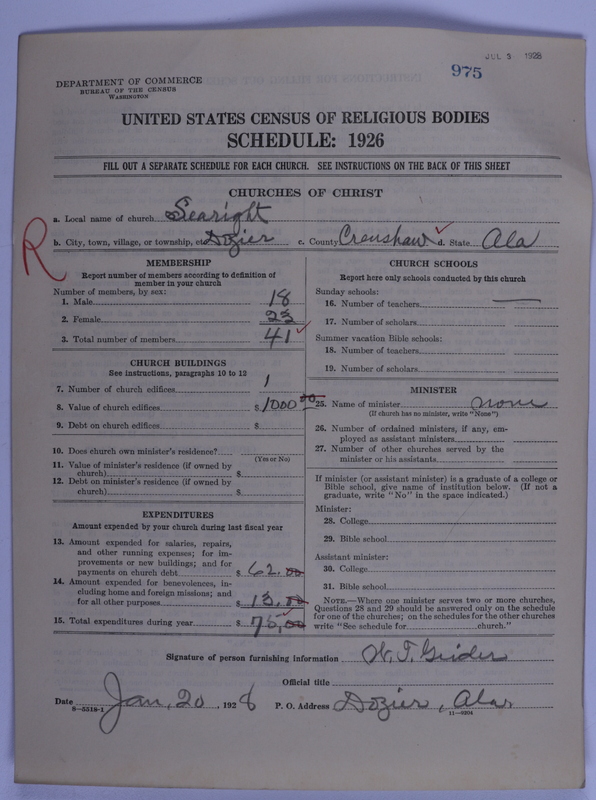 JUL 3 1928
975
DEPARTMENT OF COMMERCE
BUREAU OF THE CENSUS
WASHINGTON
UNITED STATES CENSUS OF RELIGIOUS BODIES
SCHEDULE: 1926
FILL OUT A SEPARATE SCHEDULE FOR EACH CHURCH. SEE INSTRUCTIONS ON THE BACK OF THIS SHEET
CHURCHES OF CHRIST
a. Local name of church Searight
R
b. City, town, village, or township, etc. Dozier c. County Crenshaw ✓ d. State Ala
MEMBERSHIP
Report number of members according to definition of
member in your church
Number of members, by sex:
1. Male 18
2. Female 23
3. Total number of members 41 ✓
CHURCH BUILDINGS
See instructions, paragraphs 10 to 12
7. Number of church edifices 1
8. Value of church edifices $ 1000 00
9. Debt on church edifices $
10. Does church own minister's residence?
(Yes or No)
11. Value of minister's residence (if owned by
church) $
12. Debt on minister's residence (if owned by
church) $
EXPENDITURES
Amount expended by your church during last fiscal year
13. Amount expended for salaries, repairs,
and other running expenses; for im-
provements or new buildings; and for
payments on church debt $ 62.00
14. Amount expended for benevolences, in-
cluding home and foreign missions; and
for all other purposes $ 13.00
15. Total expenditures during year $ 75.00 ✓
CHURCH SCHOOLS
Report here only schools conducted by this church
Sunday schools:
16. Number of teachers
17. Number of scholars
Summer vacation Bible schools:
18. Number of teachers
19. Number of scholars
MINISTER
25. Name of minister none
(If church has no minister, write "None")
26. Number of ordained ministers, if any, em-
ployed as assistant ministers
27. Number of other churches served by the
minister or his assistants
If minister (or assistant minister) is a graduate of a college or
Bible school, give name of institution below. (If not a
graduate, write "No" in the space indicated.)
Minister:
28. College
29. Bible school
Assistant minister:
30. College
31. Bible school
NOTE.—Where one minister serves two or more churches,
Questions 28 and 29 should be answered only on the schedule
for one of the churches; on the schedules for the other churches
write "See schedule for church."
Signature of person furnishing information W. T. Grider
Official title
Date Jan, 20, 1928 P. O. Address Dozier, Ala.
8—5518-1 11—9204